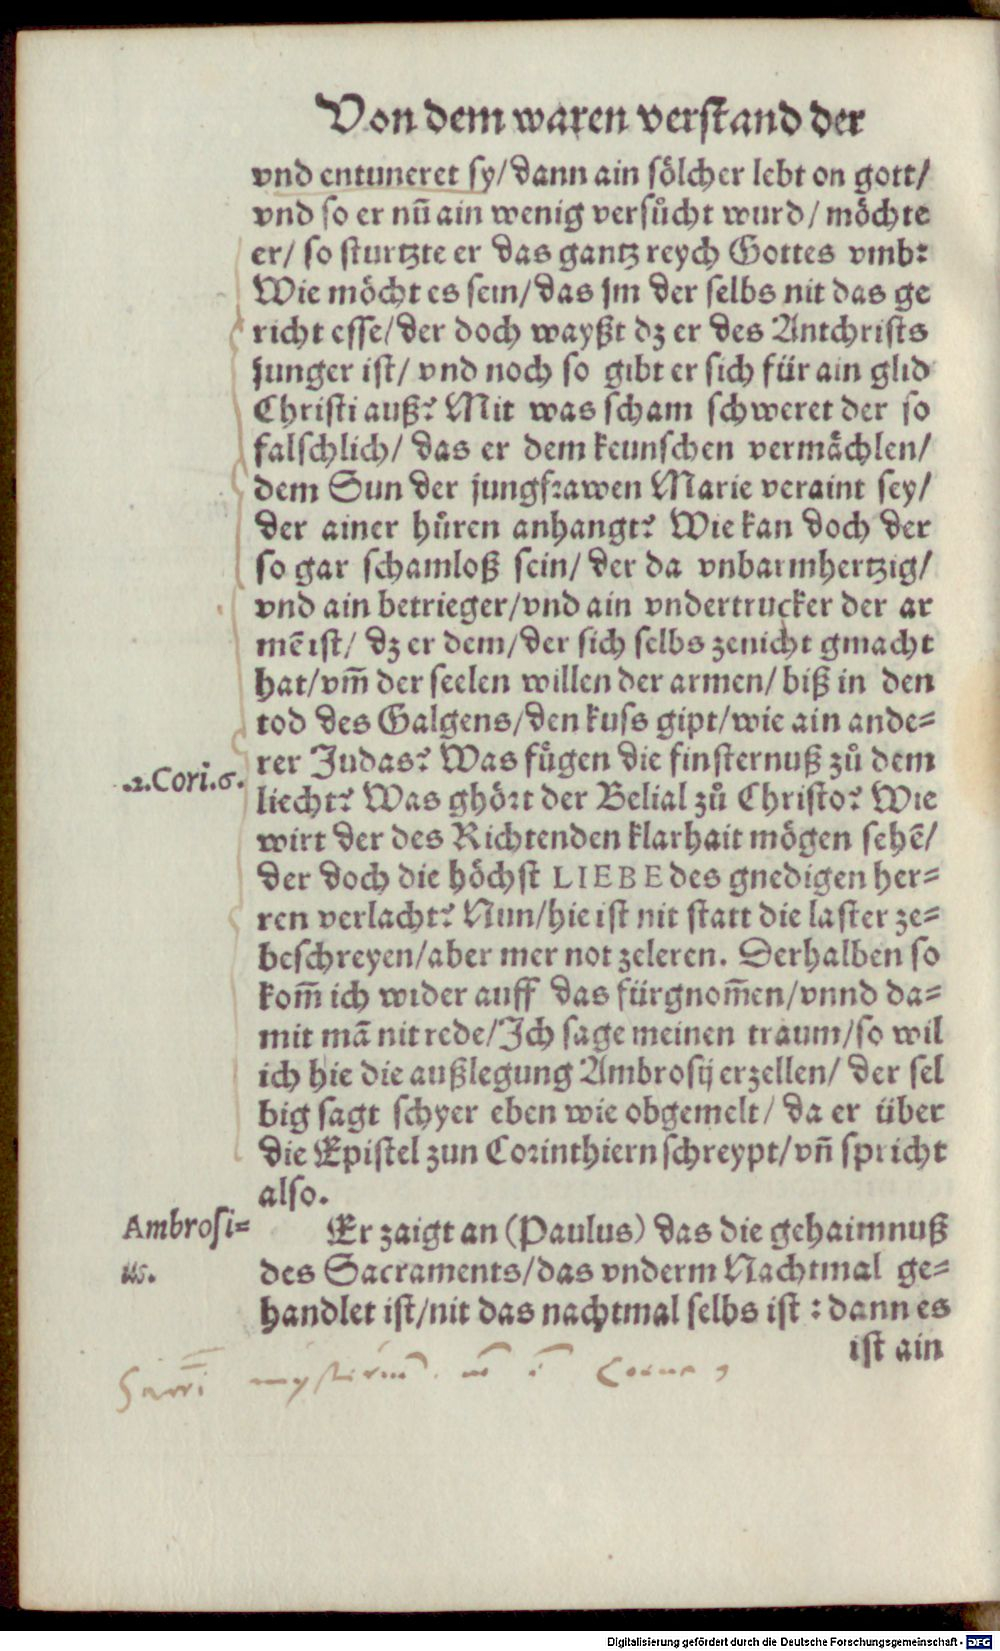 Von dem waren verstand der
vnd entuneret sy/dann ain sölcher lebt on gott/
vnd so er nũ ain wenig versůcht wurd/ möchte
er/ so sturtzte er das gantz reych Gottes vmb:
Wie möcht es sein/das jm der selbs nit das ge
richt esse/der doch wayßt dz er des Antchrists
junger ist/ vnd noch so gibt er sich für ain glid
Christi auß? Mit was scham schweret der so
falschlich/ das er dem keunschen vermächlen/
dem Sun der jungfrawen Marie veraint sey/
der ainer hůren anhangt? Wie kan doch der
so gar schamloß sein/ der da vnbarmhertzig/
vnd ain betrieger/vnd ain vndertrucker der ar
mẽ ist/ dz er dem/der sich selbs zenicht gmacht
hat/vm̃ der seelen willen der armen/ biß in den
tod des Galgens/den kuss gipt/wie ain ande=
rer Judas? Was fůgen die finsternuß zů dem
.2.Cori.6.
liecht? Was ghört der Belial zů Christo? Wie
wirt der des Richtenden klarhait mögen sehẽ/
der doch die höchst LIEBE des gnedigen her=
ren verlacht? Nun/hie ist nit statt die laster ze=
beschreyen/aber mer not zeleren. Derhalben so
kom̃ ich wider auff das fürgnom̃en/vnnd da=
mit mã nit rede/Ich sage meinen traum/so wil
ich hie die außlegung Ambrosij erzellen/ der sel
big sagt schyer eben wie obgemelt/ da er über
die Epistel zun Corinthiern schreypt/vñ spricht
also.
Ambrosi=
us.
Er zaigt an (Paulus) das die gehaimnuß
des Sacraments/das vnderm Nachtmal ge=
handlet ist/nit das nachtmal selbs ist : dann es
ist ain